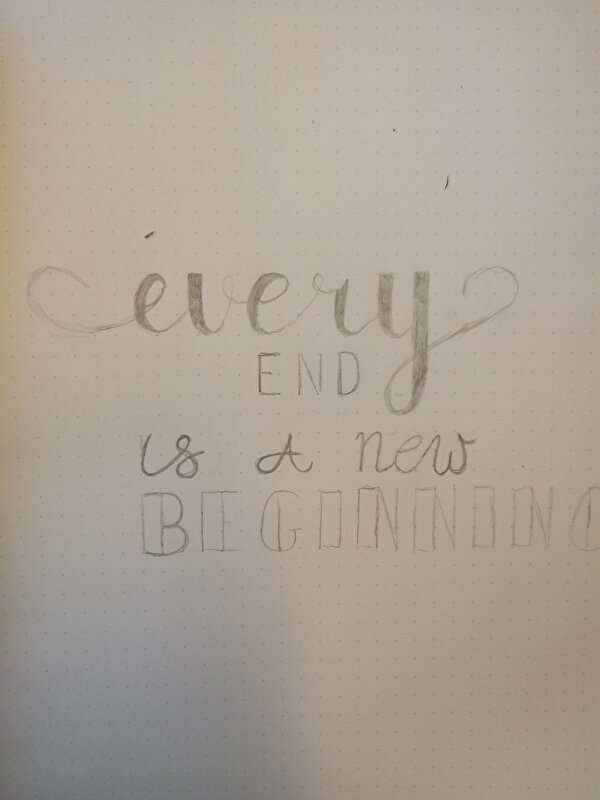 every
END
is a new
BEGINNING